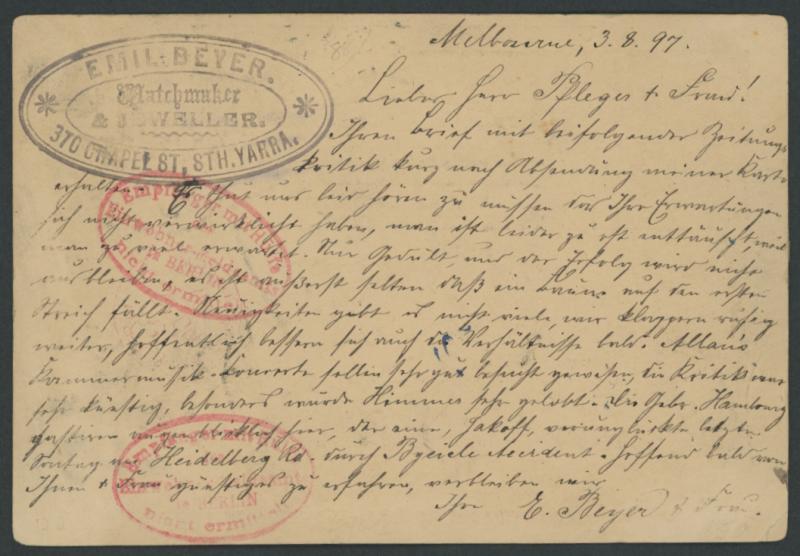 EMIL. BEYER.
Watchmaker
& JEWELLER.
370 CHAPEL ST, STH. YARRA.
Melbourne, 3.8.97.
Lieber Herr Pfleger & Frau!
Ihren Brief mit beifolgender Zeitungs
kritik kurz nach Absendung meiner Karte
erhalten. Es thut uns leid hören zu müssen das Ihre Erwartungen
sich nicht verwirklicht haben, man ist leider zu oft enttäuscht weil
man zu viel erwartet. Nur Geduld, und der Erfolg wird nicht
ausbleiben, es ist äußerst selten daß ein Baum auf den ersten
Streich fällt. Neuigkeiten gibt es nicht viele, wir klappern ruhig
weiter, hoffentlich bessern sich auch die Verhältnisse bald. Allan's
Kammermusik-Konzerte sollen sehr gut besucht gewesen, die Kritik war
sehr günstig, besonders wurde Himmer sehr gelobt. Die Gebr. Hambourg
gastiren augenblicklich hier, der eine, Jakoff, verunglückte letzten
Sontag in Heidelberg Rd. durch Bycicle Accident. Hoffend bald von
Ihnen & Frau günstiges zu erfahren, verbleiben wir
Ihre E. Beyer & Frau.
Empfänger
BERLIN
nicht ermittelt
Empfänger
in BERLIN
nicht ermittelt